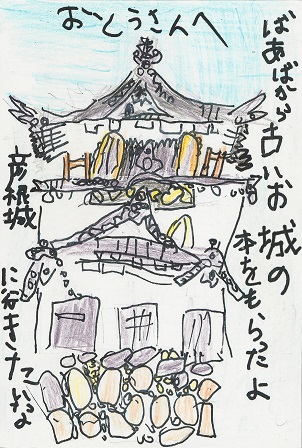 おとうさんへ
ばあばから古いお城の
本をもらったよ
彦根城
に行きたいなあ